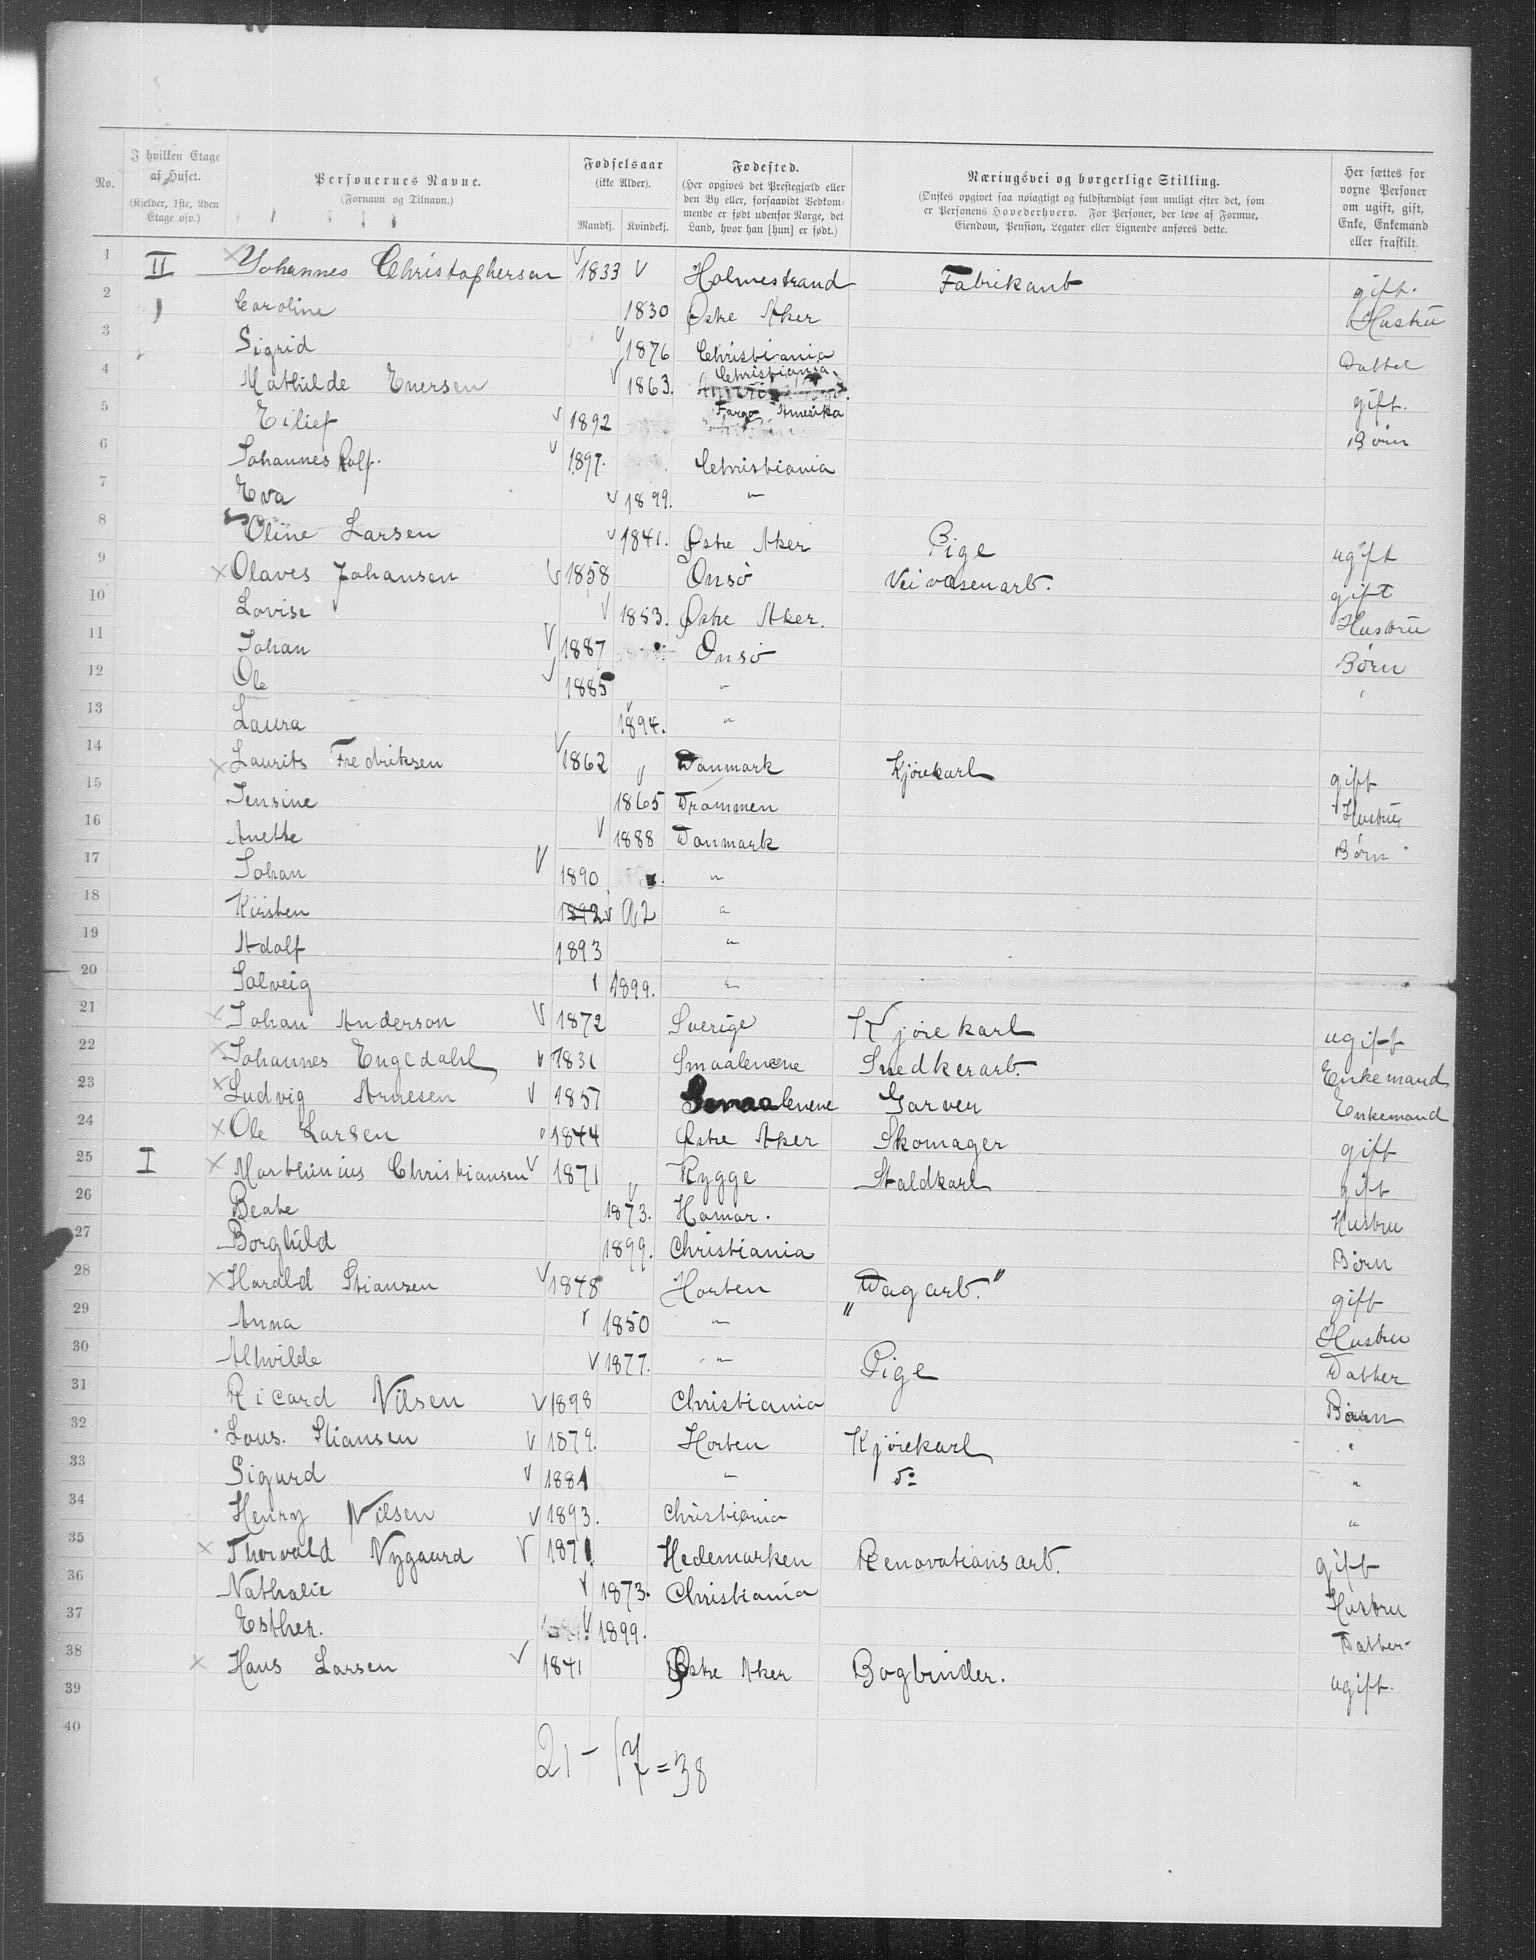 No.
I hvilken Etage af Huset. (Kjelder, 1ste, 2den Etage osv.)
Personernes Navne. (Fornavn og Tilnavn.)
Fødselsaar (ikke Alder). Mandkj. Kvindekj.
Fødested. (Her opgives det Prestegjæld eller den By eller, forsaavidt Vedkommende er født udenfor Norge, det Land, hvor han [hun] er født.)
Næringsvei og borgerlige Stilling. (Ønskes opgivet saa nøiagtigt og fuldstændigt som muligt efter det, som er Personens Hovederhverv. For Personer, der leve af Formue, Eiendom, Pension, Legater eller Lignende anføres dette.
Her sættes for voxne Personer om ugift, gift, Enke, Enkemand eller fraskilt.
1 II Johannes Christophersen 1833 Holmestrand Fabrikant gift.
2 Caroline 1830 Østre Aker Hustru
3 Sigrid 1876 Christiania Datter
4 Mathilde Eversen 1863. Christiania. gift.
5 Eilief 1892 Fargo, Amerika Børn
6 Johannes Rolf. 1897. Christiania
7 Eva 1899. "
8 Oline Larsen 1841. Østre Aker Pige ugift
9 Olaves Johansen 1858 Onsö Veivæsenarb. gift
10 Lovise 1853. Østre Aker. Hustru
11 Johan 1887 Onsö Børn
12 Ole 1885 " "
13 Laura 1894. "
14 Laurits Fredriksen 1862 Danmark Kjørekarl gift
15 Jensine 1865 Drammen Hustru
16 Anette 1888 Danmark Børn
17 Johan 1890 "
18 Kirsten 1892 92 "
19 Adolf 1893 "
20 Solveig 1899. "
21 Johan Anderson 1872 Sverige Kjørekarl ugift
22 Johannes Engedahl 1831 Smaalenene Snedkerarb. Enkemand
23 Ludvig Arnesen 1857 Smaalenene Garver Enkemand
24 Ole Larsen 1844 Østre Aker Skomager gift
25 I Marthinius Christiansen 1871 Rygge Staldkarl gift
26 Beate 1873. Hamar. Hustru
27 Borghild 1899. Christiania Børn
28 Harald Stiansen 1848 Horten "Dagarb." gift
29 Anna 1850 " Hustru
30 Alhvilde 1877. " Pige Datter
31 Ricard Nilsen 1898 Christiania Børn
32 Laus. Stiansen 1879. Horten Kjørekarl "
33 Sigurd 1881 " do "
34 Henry Nilsen 1893. Christiania "
35 Thorvald Nygaard 1871 Hedemarken Renovationsarb. gift
36 Nathalie 1873. Christiania Hustru
37 Esther. 1899. Datter
38 Hans Larsen 1841 Østre Aker Bogbinder. ugift.
39
40
21 - 17 = 38